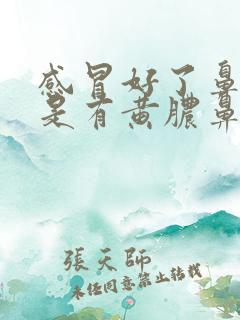 感冒好了鼻
是有黄膿鼻
張天師
未經同意禁止轉載